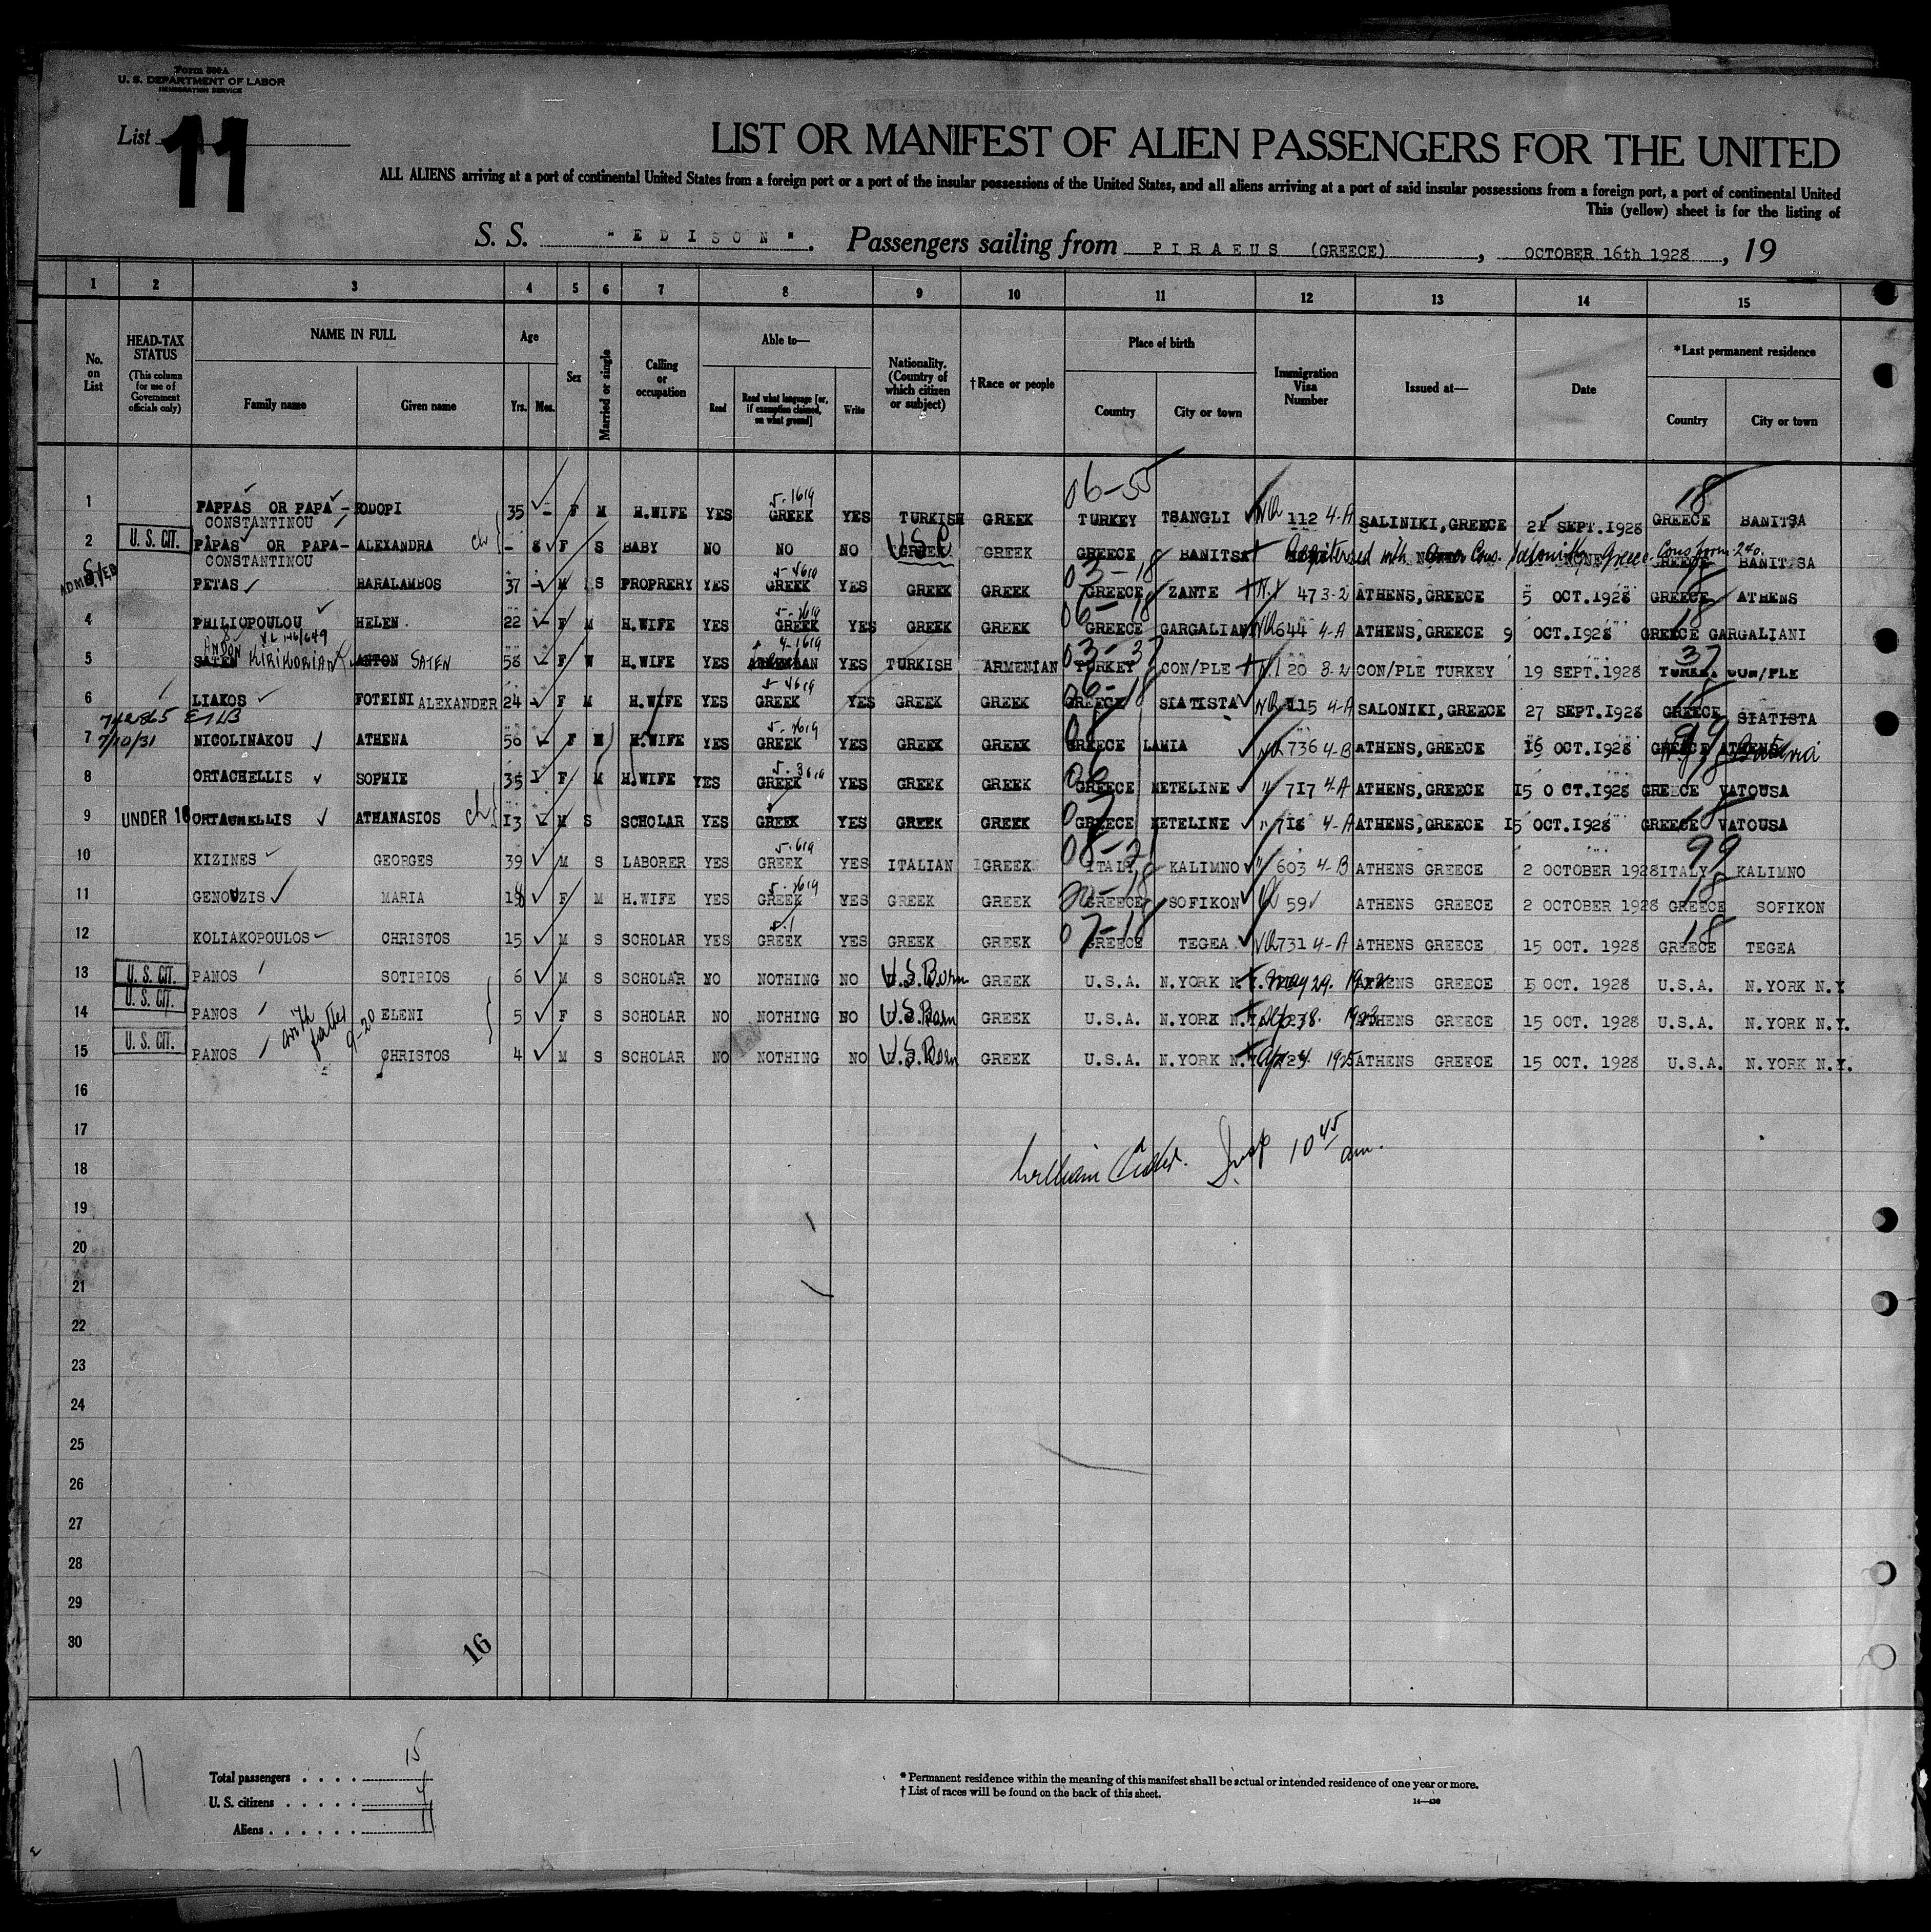 Form 500A
U. S. DEPARTMENT OF LABOR
IMMIGRATION SERVICE
List 11
LIST OR MANIFEST OF ALIEN PASSENGERS FOR THE UNITED
ALL ALIENS arriving at a port of continental United States from a foreign port or a port of the insular possessions of the United States, and all aliens arriving at a port of said insular possessions from a foreign port, a port of continental United
This (yellow) sheet is for the listing of
S. S. "EDISON". Passengers sailing from PIRAEUS (GREECE), OCTOBER 16th 1928, 19
1 2 3 4 5 6 7 8 9 10 11 12 13 14 15
No. on List
HEAD-TAX STATUS (This column for use of Government officials only)
NAME IN FULL Family name Given name
Age Yrs. Mos.
Sex
Married or single
Calling or occupation
Able to— Read Read what language [or, if exemption claimed, on what ground] Write
Nationality. (Country of which citizen or subject)
†Race or people
Place of birth Country City or town
Immigration Visa Number
Issued at—
Date
*Last permanent residence Country City or town
06-55 18
5-1619
1 PAPPAS OR PAPA- RODOPI 35 - F M H.WIFE YES GREEK YES TURKISH GREEK TURKEY TSANGLI NQ 112 4-A SALINIKI,GREECE 21 SEPT.1928 GREECE BANITSA
CONSTANTINOU
2 U. S. CIT. PAPAS OR PAPA- ALEXANDRA ch - 8 F S BABY NO NO NO GREEK U.S.C GREEK GREECE BANITSA Cons. Saloniki Greece NONE GREECE BANITSA
CONSTANTINOU
ADMITTED
3 PETAS HARALAMBOS 37 - M S PROPRERY YES GREEK YES GREEK GREEK 03-18 GREECE ZANTE 47 3-2 ATHENS,GREECE 5 OCT.1928 GREECE ATHENS
4 PHILIOPOULOU HELEN 22 - F M H.WIFE YES GREEK YES GREEK GREEK 06-18 GREECE GARGALIANI NQ 644 4-A ATHENS,GREECE 9 OCT.1928 GREECE GARGALIANI
ANDON
5 SATEN KIRIKORIAN ANTON SATEN 58 - F W H.WIFE YES ARMENIAN YES TURKISH ARMENIAN 03-37 TURKEY CON/PLE 20 3-2 CON/PLE TURKEY 19 SEPT.1928 37 TURKEY CON/PLE
6 LIAKOS FOTEINI ALEXANDER 24 - F M H.WIFE YES GREEK YES GREEK GREEK 06-18 GREECE SIATISTA NQ 115 4-A SALONIKI,GREECE 27 SEPT.1928 GREECE SIATISTA
7/10/31
7 NICOLINAKOU ATHENA 50 - F M H.WIFE YES GREEK YES GREEK GREEK GREECE LAMIA NQ 736 4-B ATHENS,GREECE 16 OCT.1928 99 GREECE ATHENS
8 ORTACHELLIS SOPHIE 35 F M H.WIFE YES GREEK YES GREEK GREEK GREECE METELINE " 717 4-A ATHENS,GREECE 15 OCT.1928 GREECE VATOUSA
9 UNDER 16 ORTACHELLIS ATHANASIOS ch 13 - M S SCHOLAR YES GREEK YES GREEK GREEK GREECE METELINE " 718 4-A ATHENS,GREECE 15 OCT.1928 GREECE 18 VATOUSA
10 KIZINES GEORGES 39 M S LABORER YES GREEK YES ITALIAN GREEK 08-21 ITALY KALIMNO " 603 4-B ATHENS GREECE 2 OCTOBER 1928 99 ITALY KALIMNO
11 GENOUZIS MARIA 18 F M H.WIFE YES GREEK YES GREEK GREEK 20-18 GREECE SOFIKON Q 59 ATHENS GREECE 2 OCTOBER 1928 18 GREECE SOFIKON
12 KOLIAKOPOULOS CHRISTOS 15 M S SCHOLAR YES GREEK YES GREEK GREEK 07-18 GREECE TEGEA NQ 731 4-A ATHENS GREECE 15 OCT. 1928 18 GREECE TEGEA
13 U. S. CIT. PANOS SOTIRIOS 6 M S SCHOLAR NO NOTHING NO U.S. Born GREEK U.S.A. N.YORK N.Y. May 29. ATHENS GREECE 15 OCT. 1928 U.S.A. N.YORK N.Y.
14 U. S. CIT. PANOS ELENI 5 F S SCHOLAR NO NOTHING NO U.S. Born GREEK U.S.A. N.YORK N.Y. ATHENS GREECE 15 OCT. 1928 U.S.A. N.YORK N.Y.
with father 9-20
15 U. S. CIT. PANOS CHRISTOS 4 M S SCHOLAR NO NOTHING NO U.S. Born GREEK U.S.A. N.YORK N.Y. 1925 ATHENS GREECE 15 OCT. 1928 U.S.A. N.YORK N.Y.
16
17
William Insp 10 45 am.
18
19
20
21
22
23
24
25
26
27
28
29
30
16
17
Total passengers .... 15
U. S. citizens ..... 4
Aliens ...... 11
* Permanent residence within the meaning of this manifest shall be actual or intended residence of one year or more.
† List of races will be found on the back of this sheet.
14—430